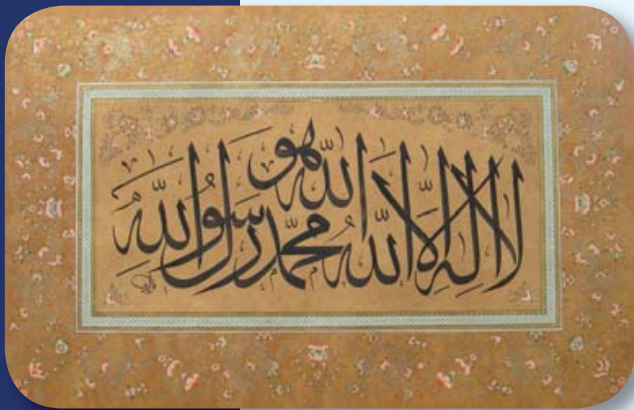 لا اله الا الله الله هو محمد رسول الله